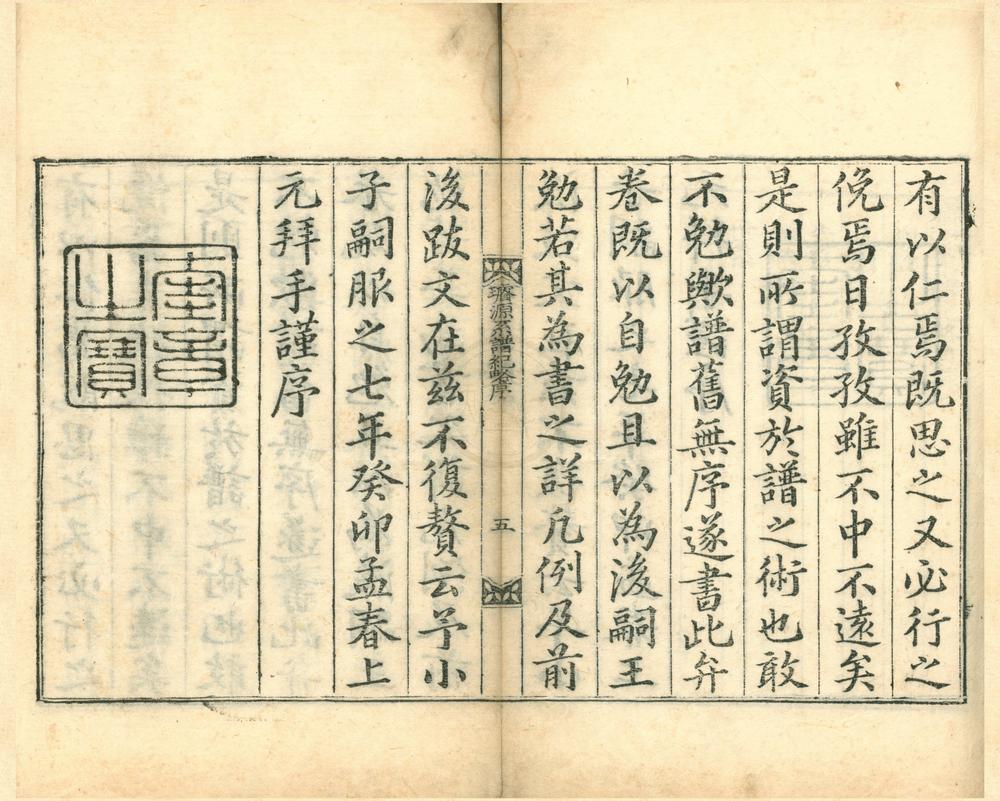 有以仁焉既思之又必行之
俛焉日孜孜雖不中不遠矣
是則所謂資於譜之術也敢
不勉歟譜舊無序遂書此弁
卷既以自勉且以為後嗣王
勉若其為書之詳凡例及前
璿源系譜紀略序
五
後跋文在兹不復贅云予小
子嗣服之七年癸卯孟春上
元拜手謹序
奎章
之寶